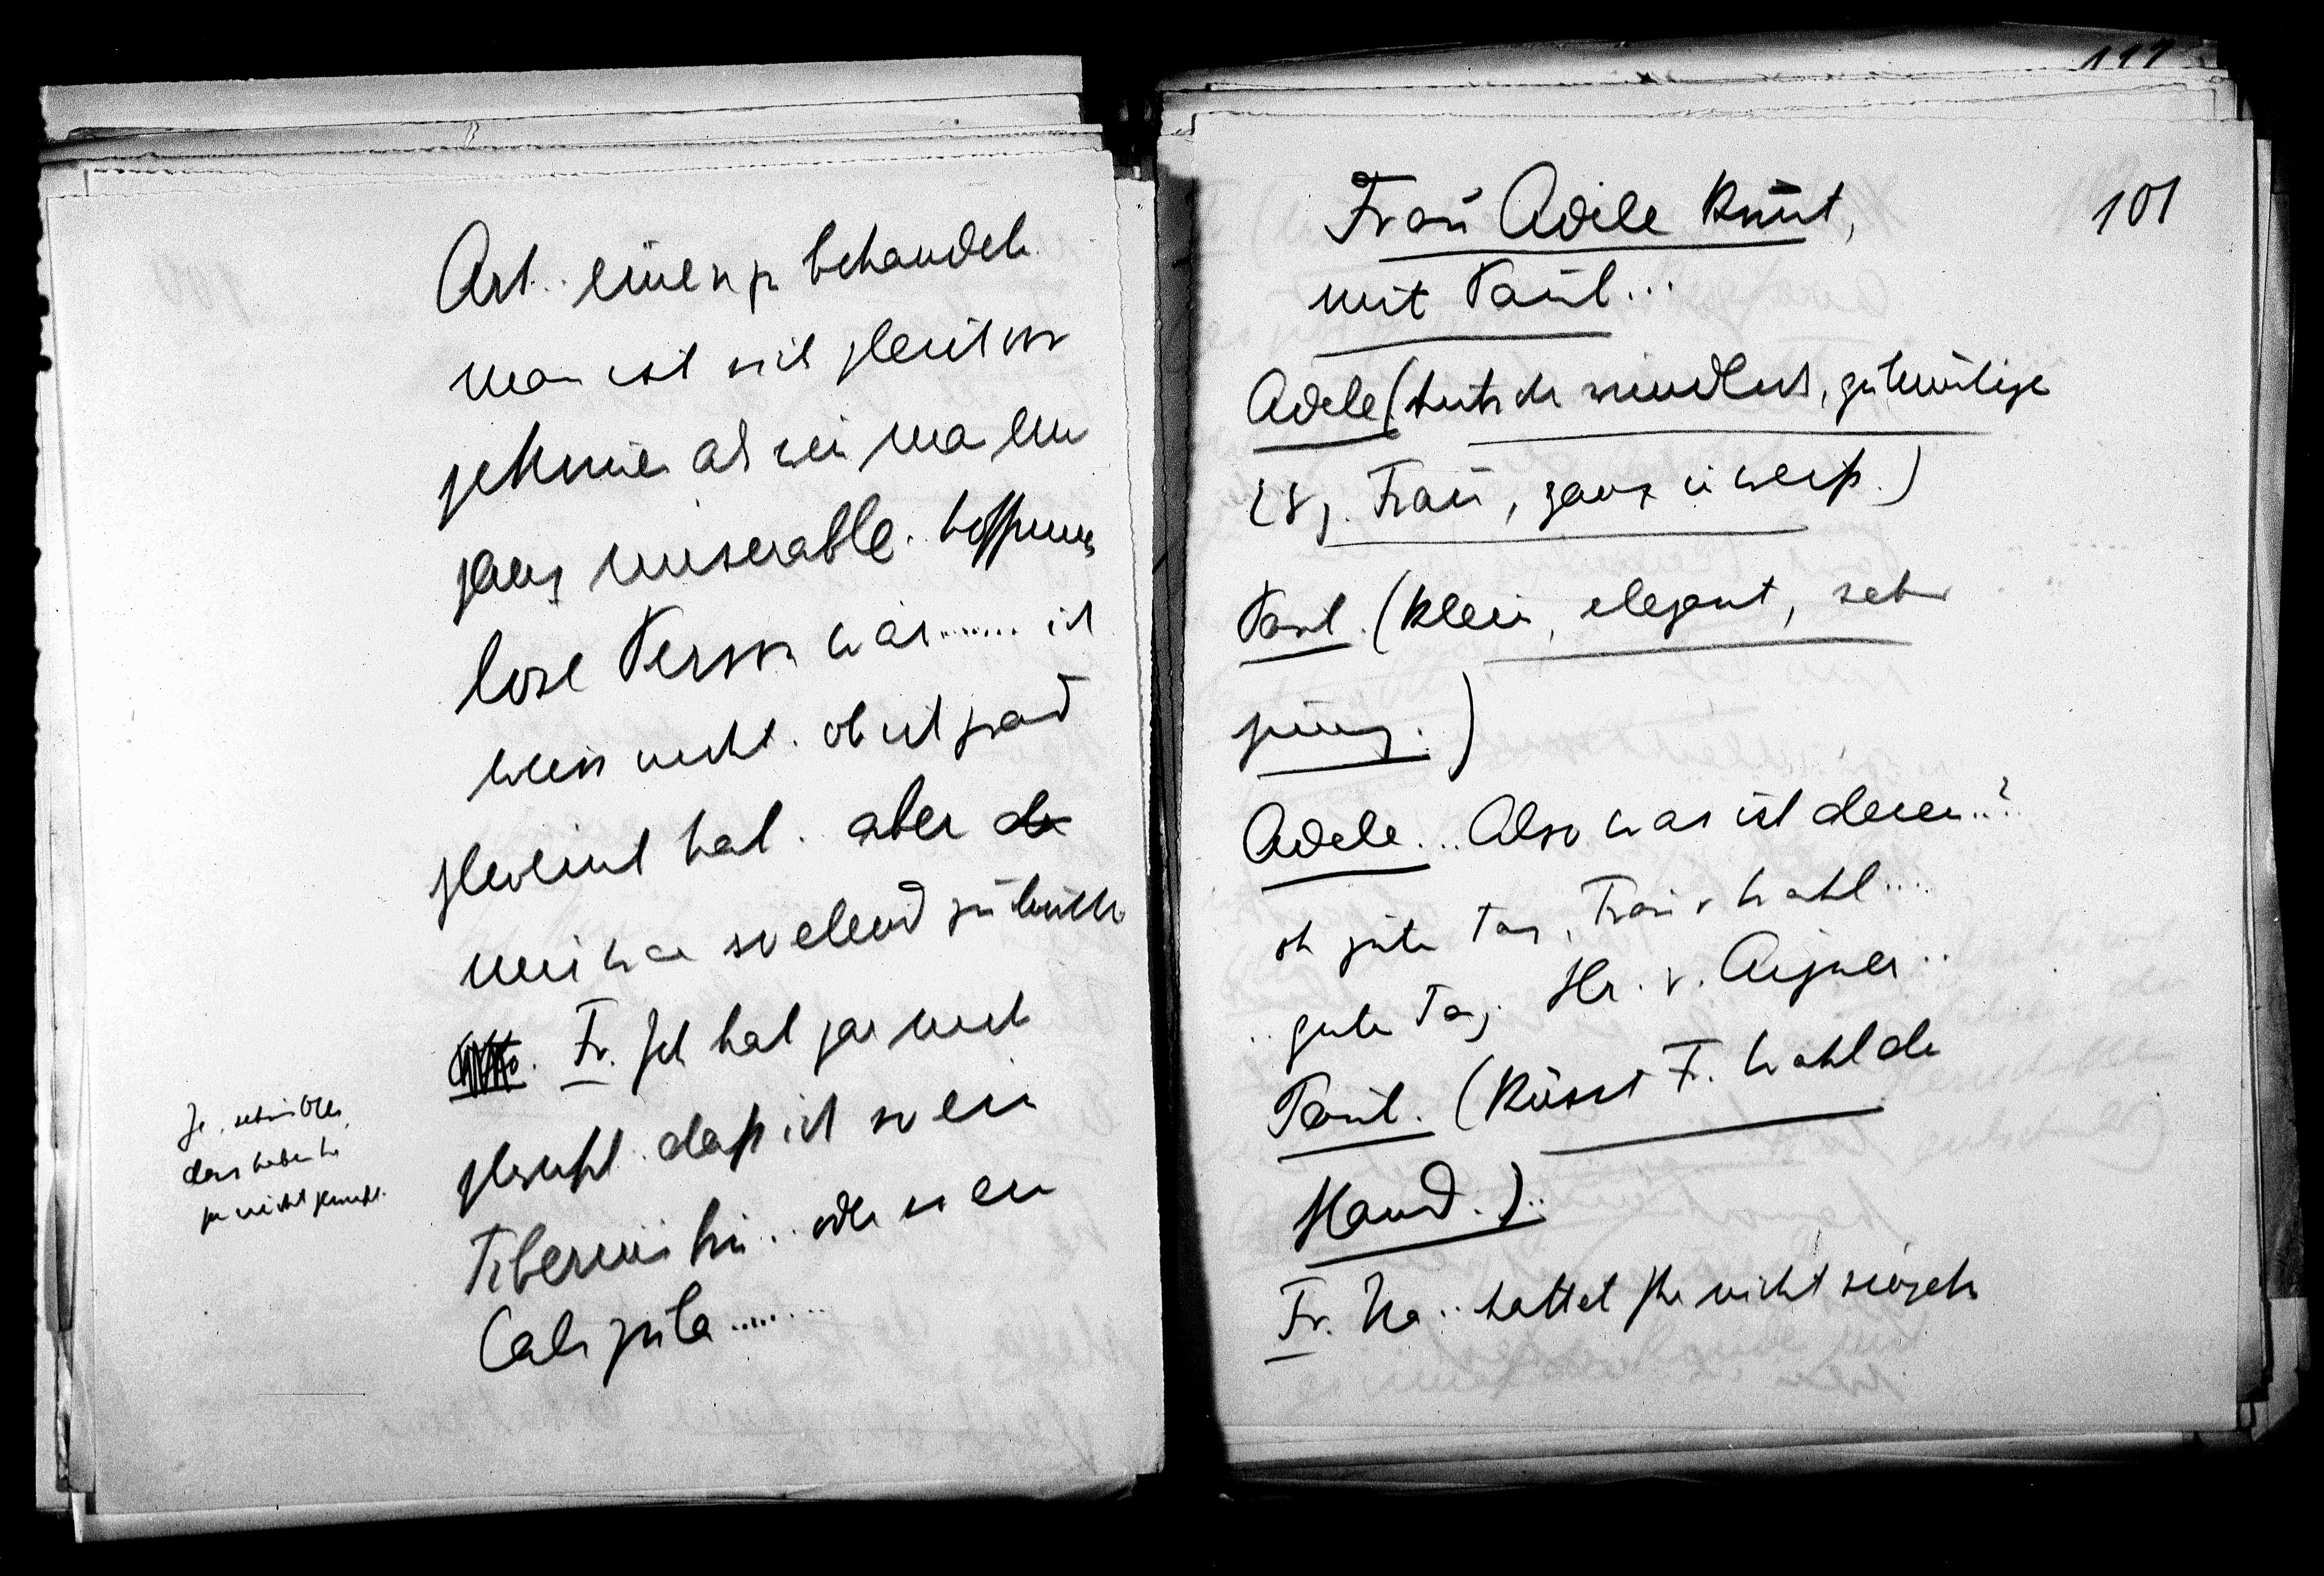 Art.. einen zu behandeln
man ist sich gleich vor
gekommen als wenn man eine
ganz miserable. hoffnungs
lose Person wär....... ich
weiss nicht. ob ich grad
geweint hab. aber
mir war so elend zu
Fr. Ich hab gar nicht
gewusst. dass ich so ein
Tiberius bin.. oder so ein
Caligula........
Ja,
das haben Sie
gar nicht gewusst.
101
Frau Adele
mit Paul...
Adele (hübsche rundliche, gutmütige
28j. Frau, ganz in weiss.)
Paul. (klein, elegant, sehr
jung.)
Adele... Also was ist denn..?
oh guten Tag, Frau v Wahl....
.. guten Tag Hr. v. Aigner..
Paul. (küsst Fr. Wahl die
Hand.)..
Fr. Na.. hattet Ihr nicht